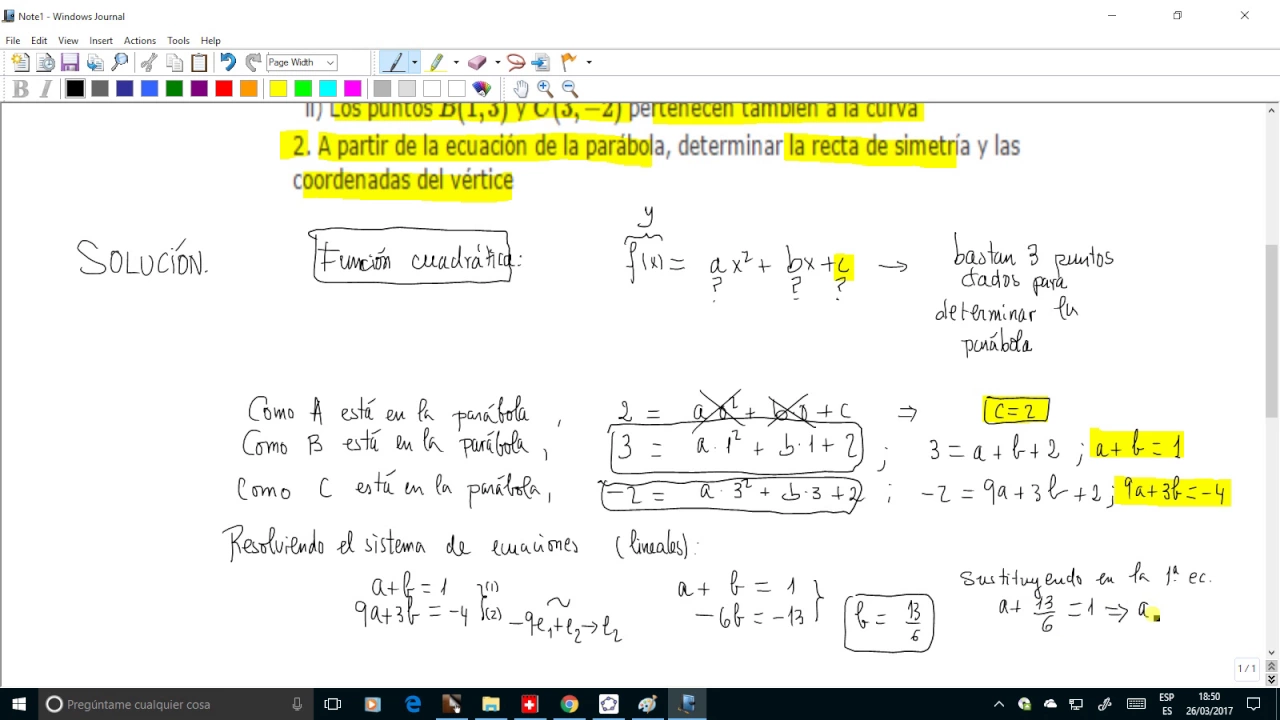 Note1 - Windows Journal
File Edit View Insert Actions Tools Help
Page Width
B I
ii) Los puntos B(1,3) y C(3,−2) pertenecen también a la curva
2. A partir de la ecuación de la parábola, determinar la recta de simetría y las
coordenadas del vértice
y
SOLUCIÓN. Función cuadrática: f(x) = ax² + bx + c → bastan 3 puntos
? ? ? dados para
determinar la
parábola
Como A está en la parábola, 2 = a·0² + b·0 + c ⇒ c=2
Como B está en la parábola, 3 = a·1² + b·1 + 2 ; 3 = a + b + 2 ; a + b = 1
Como C está en la parábola, −2 = a·3² + b·3 + 2 ; −2 = 9a + 3b + 2 ; 9a + 3b = −4
Resolviendo el sistema de ecuaciones (lineales):
a + b = 1 } (1) a + b = 1 } Sustituyendo en la 1ª ec.
9a + 3b = −4 } (2) ~ −9e₁ + e₂ → e₂ −6b = −13 } b = 13/6 a + 13/6 = 1 ⇒ a
1 / 1
Pregúntame cualquier cosa
ESP 18:50
ES 26/03/2017